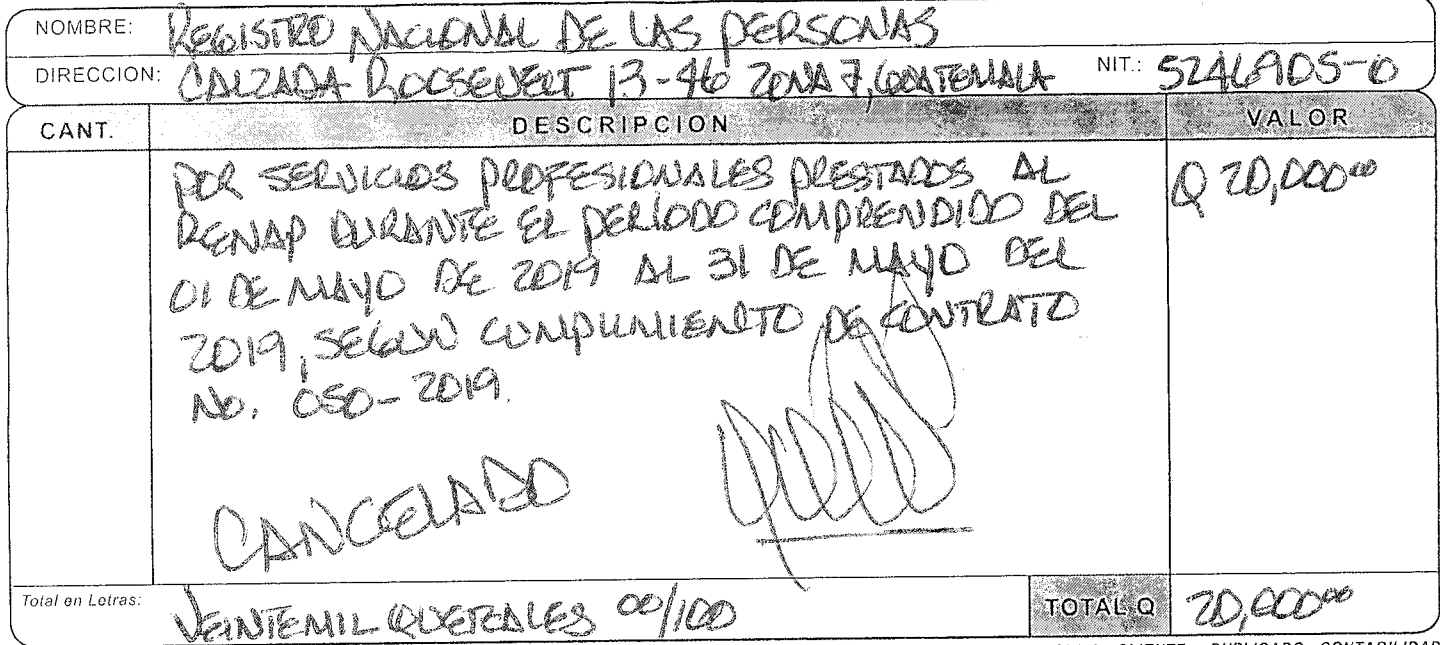 NOMBRE: REGISTRO NACIONAL DE LAS PERSONAS
DIRECCION: CALZADA ROOSEVELT 13-46 ZONA 7, GUATEMALA NIT.: 5246905-0
CANT. DESCRIPCION VALOR
POR SERVICIOS PROFESIONALES PRESTADOS AL Q 20,000.00
RENAP DURANTE EL PERÍODO COMPRENDIDO DEL
01 DE MAYO DE 2019 AL 31 DE MAYO DEL
2019, SEGÚN CUMPLIMIENTO DE CONTRATO
No. 050-2019.
CANCELADO
Total en Letras: VEINTEMIL QUETZALES 00/100 TOTAL Q 20,000.00
CLIENTE DUPLICADO CONTABILIDAD